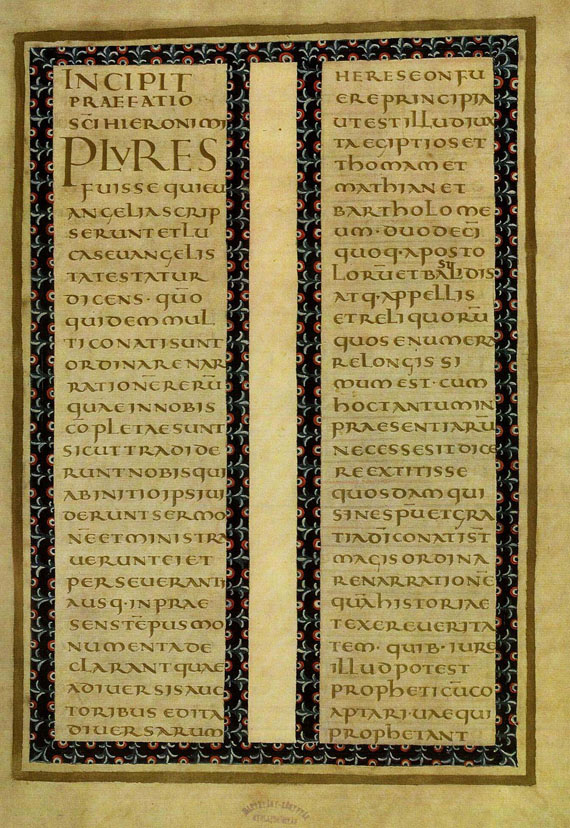 INCIPIT
PRAEFATIO
SCI HIERONIMI
PLVRES
FUISSE QUI EU
ANGELIA SCRIP
SERUNT ET LU
CAS EUANGELIS
TA TESTATUR
DICENS · QUŌ
QUIDEM MUL
TI CONATI SUNT
ORDINARE NAR
RATIONĒ RERŪ
QUAE IN NOBIS
CŌPLETAE SUNT
SICUT TRADIDE
RUNT NOBIS QUI
AB INITIO IPSI UI
DERUNT SERMO
NĒ ET MINISTRA
UERUNT EI ET
PERSEUERANTI
A USQ· IN PRAE
SENS TĒPUS MO
NUMENTA DE
CLARANT QUAE
A DIUERSIS AUC
TORIBUS EDITA
DIUERSARUM
HERESEON FU
ERE PRINCIPIA
UT EST ILLUD IUX
TA EGIPTIOS ET
THOMAM ET
MATHIAN ET
BARTHOLOME
UM · DUODECĪ
QUOQ· APOSTO
LORŪ ET BASILIDIS
ATQ· APPELLIS
ET RELIQUORŪ
QUOS ENUMERA
RE LONGISSI
MUM EST · CUM
HOC TANTUM IN
PRAESENTIARŪ
NECESSE SIT DICE
RE EXTITISSE
QUOSDAM QUI
SINE SPŪ ET GRA
TIA DĪ CONATI ST
MAGIS ORDINA
RE NARRATIONĒ
QUĀ HISTORIAE
TEXERE UERITA
TEM · QUIB· IURE
ILLUD POTEST
PROPHETICŪ CO
APTARI · UAE QUI
PROPHETANT